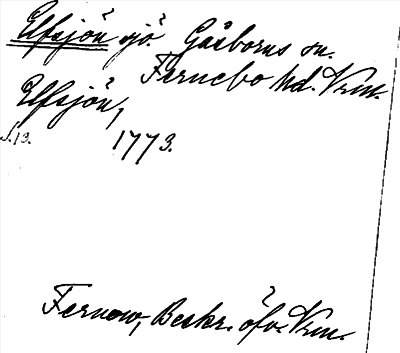 Elfsjön sjö. Gåsborns sn.
Fernebo hd. Vrm.
Elfsjön,
s. 13. 1773.
Fernow, Beskr. öfv. Vrm.